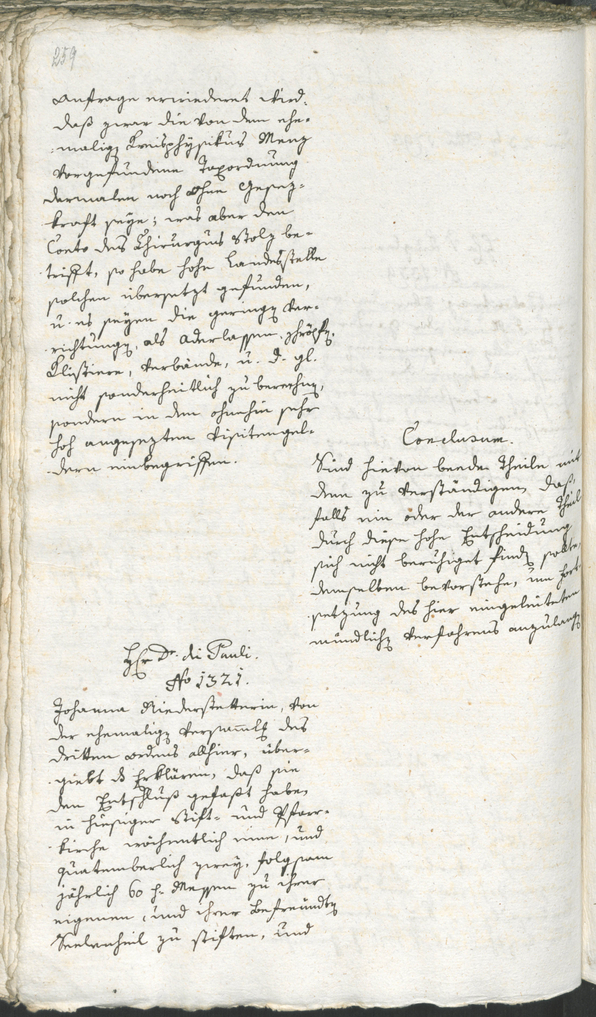 259
Anfrage erwiedert wird,
daß zwar die von dem ehe-
malig Kreisphysikus Menz
vorgefundene Taxordnung
dermalen noch ohne Gesez-
kraft seye; was aber den
Conto des Chirurgus Stolz be-
trifft, so habe hohe Landesstelle
solchen übersetzt gefunden,
u. es seyen die gering Ver-
richtung, als Aderlassen, schröpf,
Klystiere, Verbände, u. d. gl.
nicht sonderheitlich zu berechn,
sondern in den ohnehin sehr
hoch angesezten Visitengel-
dern einbegriffen.
Conclusum.
Sind hievon beede Theile mit
dem zu verständigen, daß,
falls ein oder der andere Theil
durch diese hohe Entscheidung
sich nicht beruhiget find sollte,
demselben bevorstehe, um Fort-
setzung des hier eingeleiteten
mündlich Verfahrens anzulang
Hr Dr. di Pauli.
No 1321.
Johanna Niederstetterin, von
der ehemalig Versamml des
dritten Ordens allhier, über-
giebt das Erklären, daß sie
den Entschluß gefaßt habe,
in hiesiger Stift- und Pfarr-
kirche wöchentlich eine, und
quatemberlich zwey, folgsam
jährlich 60 h. Messen zu ihrer
eigenen, und ihrer Befreundt
Seelenheil zu stiften, und